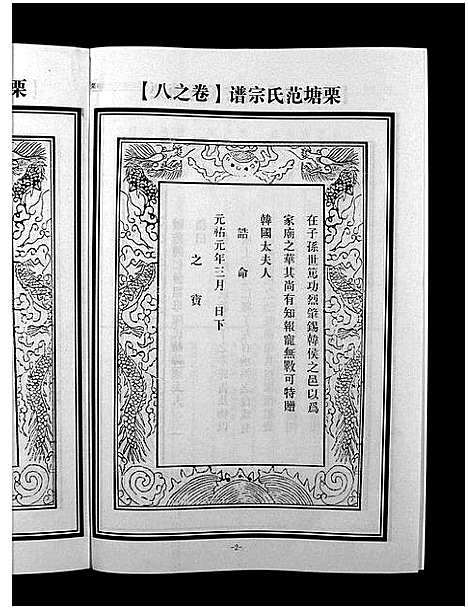 栗塘范氏宗谱【卷之八】
在子孫世範功烈肇錫韓侯之邑以爲
家廟之華其尚有知報寵無斁可特贈
韓國太夫人
誥命
元祐元年三月 日下
之寶
-2-
栗